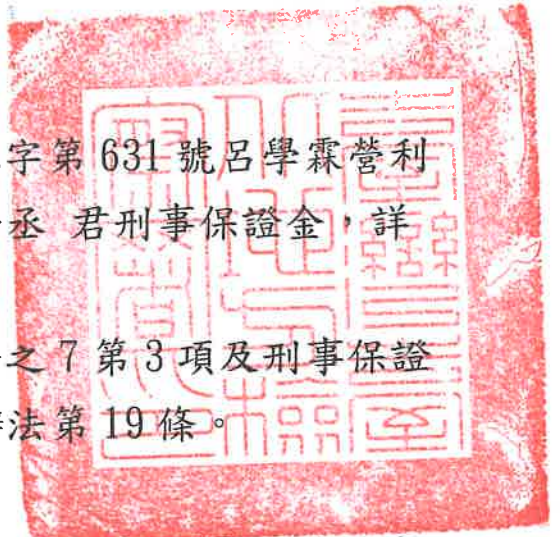 字第 631 號呂學霖營利
丞 君刑事保證金，詳
之 7 第 3 項及刑事保證
法第 19 條。